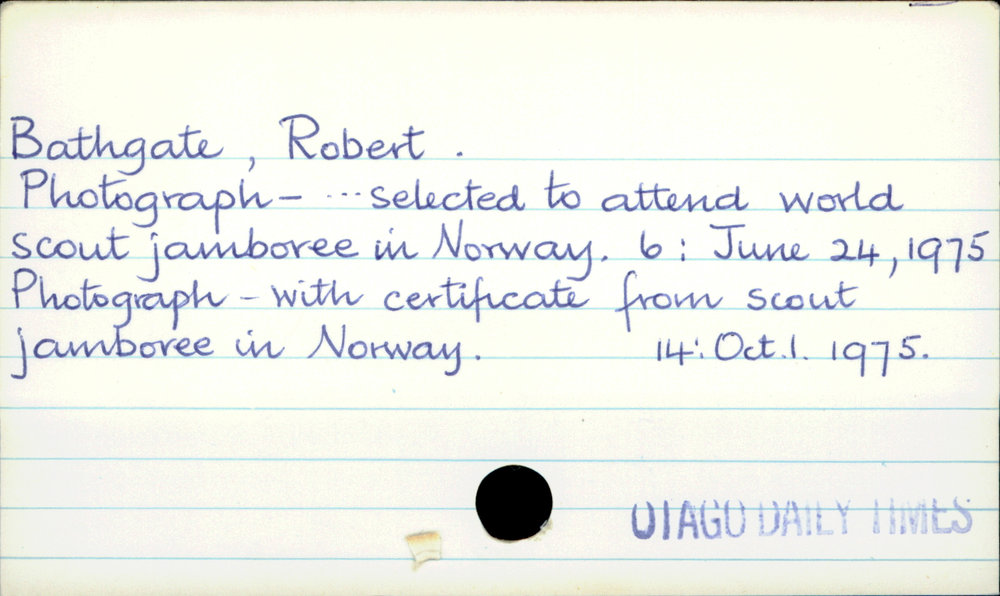 Bathgate, Robert.
Photograph - ... selected to attend world
scout jamboree in Norway. 6: June 24, 1975
Photograph - with certificate from scout
jamboree in Norway. 14: Oct. 1. 1975.
OTAGO DAILY TIMES